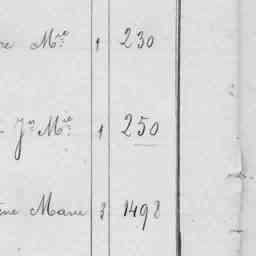 re Mre 1 230
Jn Mie 1 250
ène Marie 3 1498